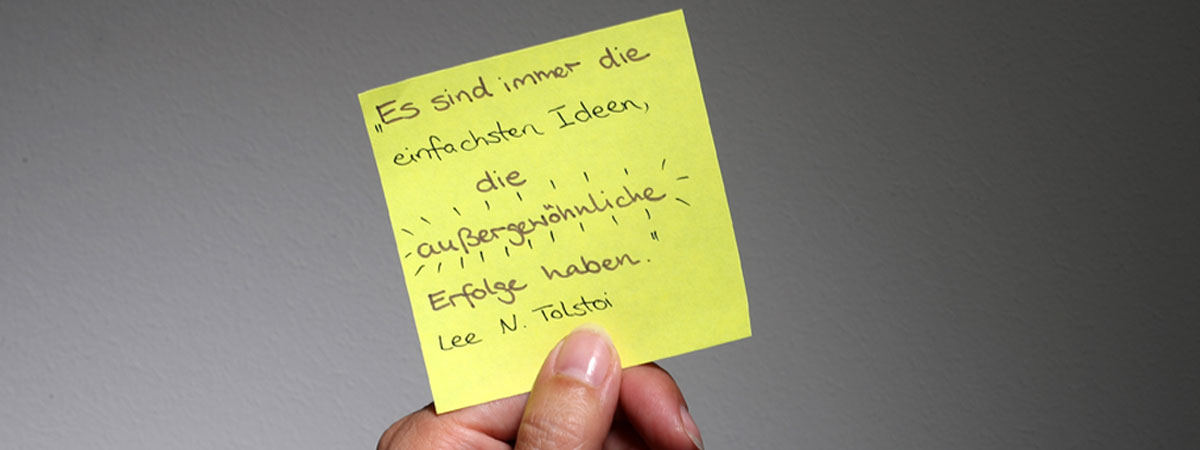 „Es sind immer die
einfachsten Ideen,
die
außergewöhnliche
Erfolge haben."
Lee N. Tolstoi